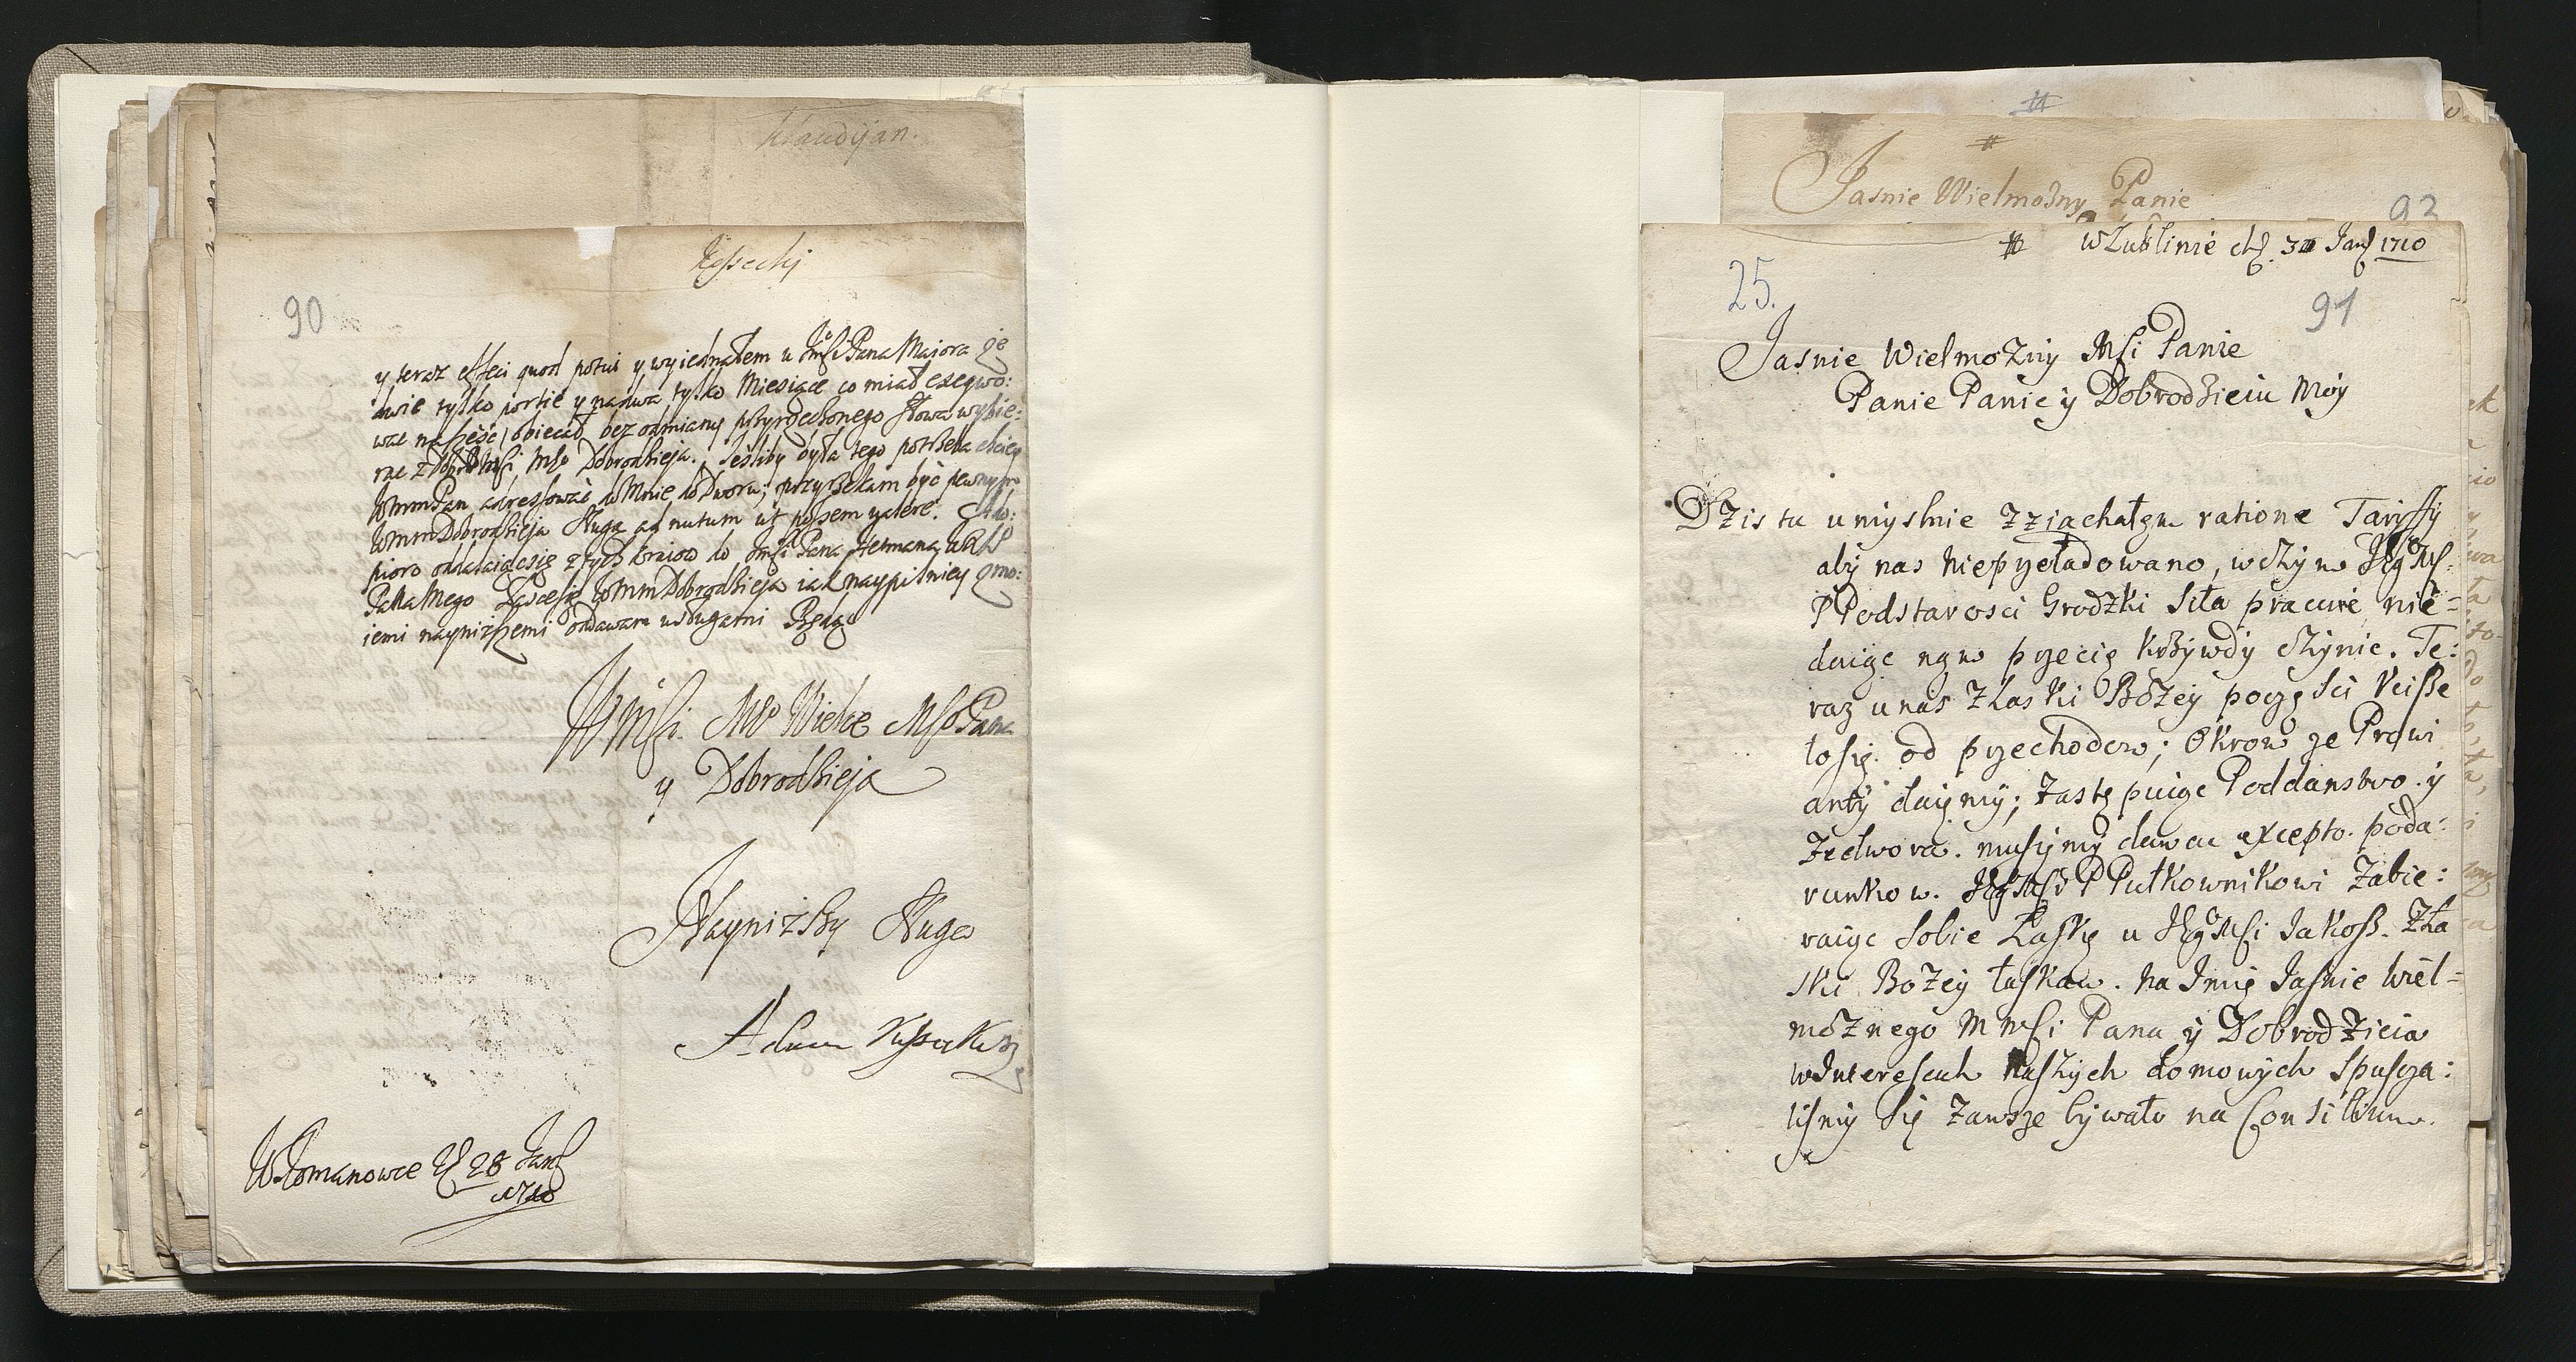 Klaudijan.
90
y teraz effeci quod potui y wyiednałem u Jmści Pana Maiora że
dwie tylko portie y na dwa tylko Miesiące co miał exeqwo:
wac na sześć obiecał bez odmiany przyrzeczonego Słowa wybie:
rac z Dobr Mści Mgo Dobrodzieja. Jeśliby była tego potrzeba chciey
WmmPan adressować do Mnie do Dworu; przyrzekam być pewnym
WmmDobrodzieja Sługą ad nutum ut possem valere.
pioro oddalaiąc się z tych kraiow do Jmści Pana Hetmana
Pana Mego Łascesię WmmDobrodzieja iak naypilniey zmo:
iemi nayniższemi oddawam usługami Będąc
WmMści Mgo Wielce MśgoPana
y Dobrodzieja
Nayniższy Sługa
Adam
W Romanowce D 28 Jan
1710
Jasnie Wielmożny Panie
92
w Lublinie d. 30 Jan 1710
25.
91
Jasnie Wielmożny Mści Panie
Panie Panie y Dobrodzieiu Móy
Dzis tu umyslnie zziachałem ratione Taryffy
aby nas nieprzeładowano, w czym JegMś.
P Podstarosci Grodzki siła pracuie nie=
daiąc nam przecię krzywdy czynić. Te:
raz u nas z Łaski Bożey poczęści Ucisze
ło się. od przechodow; Okrom ze Prowi
anty daięmy; zastępuiąc Poddanstwo. y
ze dwora. musięmy dawac excepto. poda:
runkow. JegMści P Pułkownikowi zabie:
raiąc sobie Łaskę u JegMści Jakosz. z Ła
ski Bożey łaskaw. na Imię Jasnie Wiel=
możnego M Mści Pana y Dobrodzieia
w Interesach naszych domowych spuscza:
lismy się zawsze bywało na Consilium.